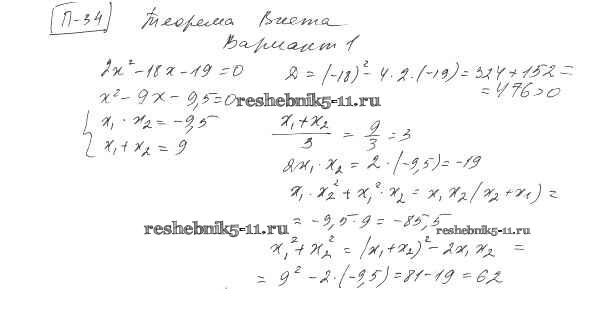 П-34 Теорема Виета
Вариант 1
2x² - 18x - 19 = 0 D = (-18)² - 4·2·(-19) = 324 + 152 =
= 476 > 0
x² - 9x - 9,5 = 0
reshebnik5-11.ru
{ x₁ · x₂ = -9,5
x₁ + x₂ = 9
(x₁ + x₂)/3 = 9/3 = 3
2x₁ · x₂ = 2·(-9,5) = -19
x₁ · x₂² + x₁² · x₂ = x₁x₂(x₂ + x₁) =
= -9,5 · 9 = -85,5
reshebnik5-11.ru
reshebnik5-11.ru
x₁² + x₂² = (x₁ + x₂)² - 2x₁x₂ =
= 9² - 2·(-9,5) = 81 - 19 = 62